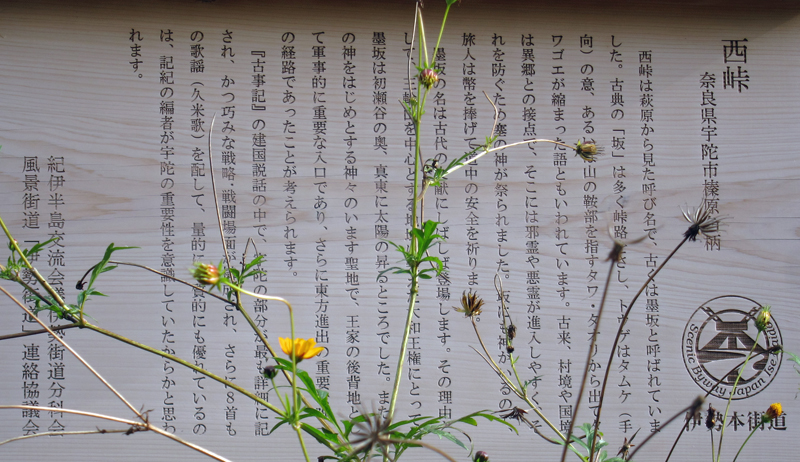 西峠
奈良県宇陀市榛原
西峠は萩原から見た呼び名で、古くは墨坂と呼ばれていま
した。古典の「坂」は多く峠路を さし、トウゲはタムケ（手
向）の意、ある 山の鞍部を指すタワ・タ から出て
ワゴエが縮まっ 語ともいわれています。古来、村境や国境
は異郷との接点で、そこには邪霊や悪霊が進入しやすく、そ
れを防ぐた 塞の神が祭られました。坂 神か るの
旅人は幣を捧げて 中の安全を祈りま
墨坂の名は古代 献にしば 登場します。その理由
して を中心とす 和王権にとっ
墨坂は初瀬谷の奥、真東に太陽の昇るところでした。また
の神をはじめとする神々のいます聖地で、王家の後背地と
て軍事的に重要な入口であり、さらに東方進出の重要
の経路であったことが考えられます。
『古事記』の建国説話の中で、 陀の部分が最も詳細に記
され、かつ巧みな戦略・戦闘場面 され、さらに８首も
の歌謡（久米歌）を配して、量的に 質的にも優れているの
は、記紀の編者が宇陀の重要性を意識していたからかと思わ
れます。
紀伊半島交流会議 街道分科会
風景街道「伊勢街道」連絡協議会
Scenic Byway Japan
伊勢本街道